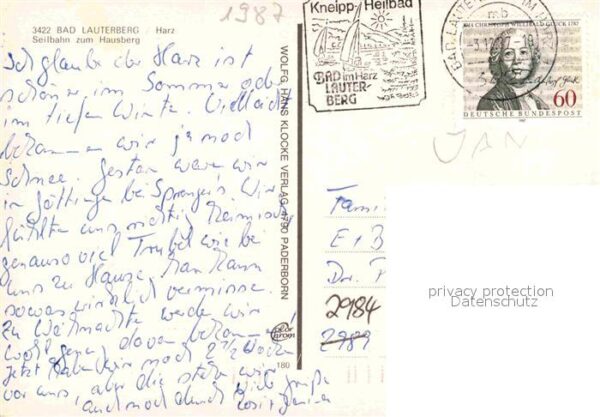 1987
3422 BAD LAUTERBERG / Harz
Seilbahn zum Hausberg
Ich glaube der Harz ist
schöner im Sommer oder
im tiefen Winter. Vielleicht
bekommen wir ja noch
Schnee. Gestern waren wir
in Göttingen bei Sprengers. Wir
fühlten uns richtig heimisch
genauso viel Trubel wie bei
uns zu Hause. Man kann
sowas wirklich vermissen.
Zu Weihnachten werden wir
wohl genug davon bekommen!
Jetzt haben wir noch 2 1/2 Wochen
vor uns, aber die stehen wir
auch noch durch. Viele Grüße
WOLFG. HANS KLOCKE VERLAG 4790 PADERBORN
color chrom
180
Kneipp-Heilbad
BAD im Harz
LAUTER-
BERG
BAD LAUTERBERG IM HARZ
mb
CHRISTOPH WILLIBALD GLUCK
60
DEUTSCHE BUNDESPOST
1987
JAN
Fami
Dr.
2984
2989
privacy protection
Datenschutz